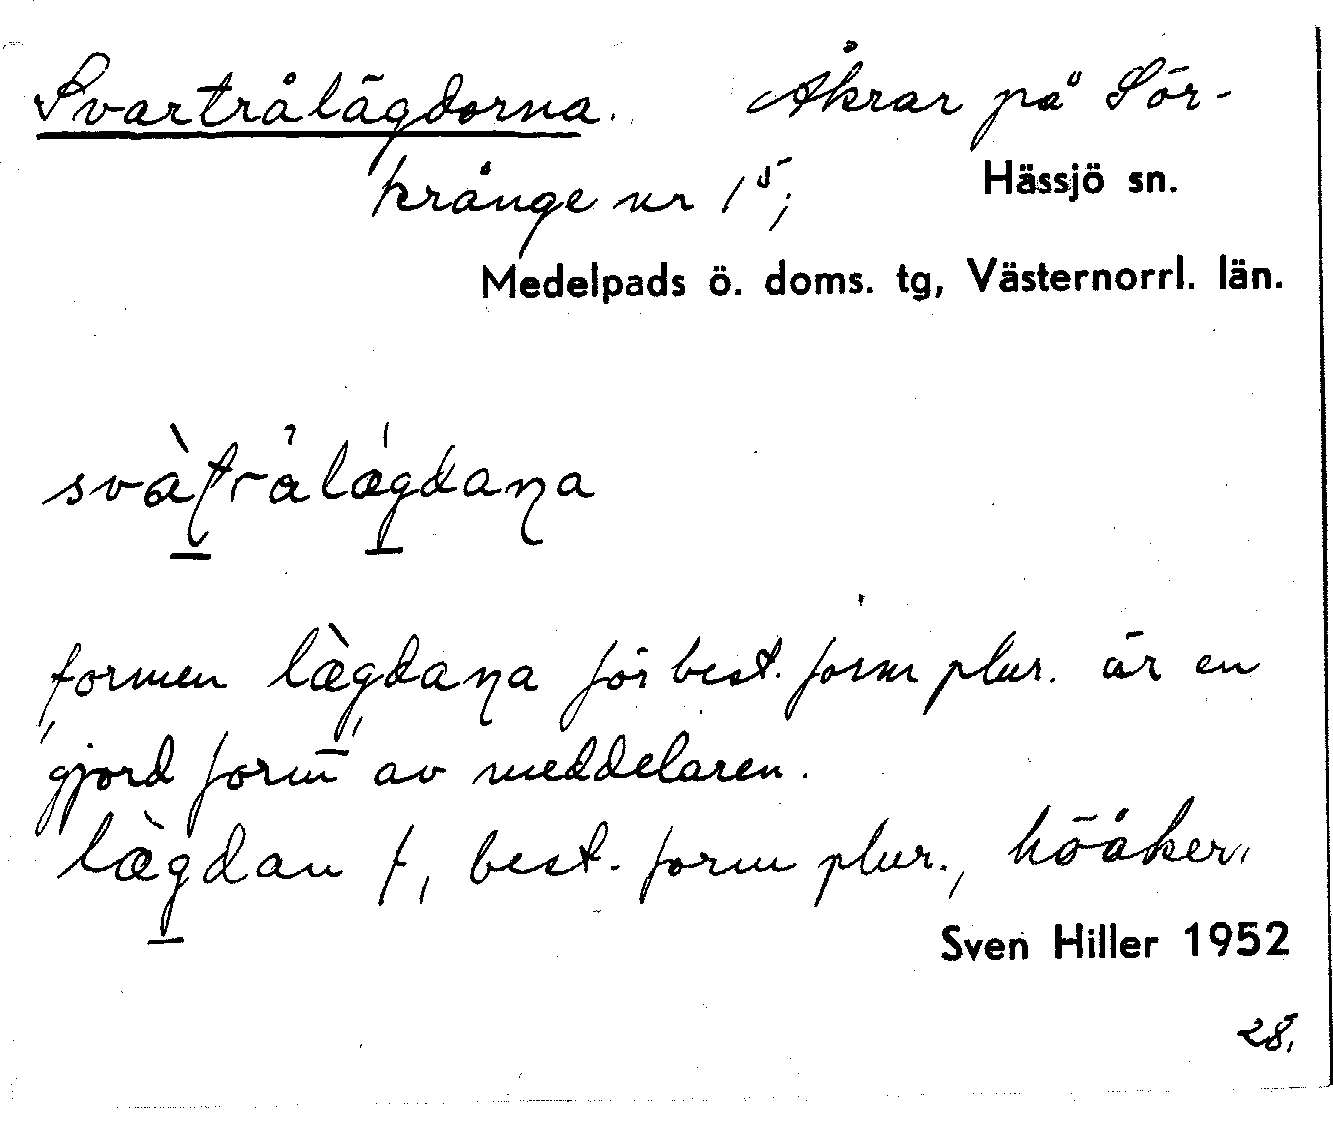 Svartrålägdorna. Åkrar på Sör-
Hässjö sn.
krånge nr 15;
Medelpads ö. doms. tg, Västernorrl. län.
svàʈrålǽgdaɳa
formen læ̀gdaɳa för best. form plur. är en
gjord form av meddelaren.
læ̀gdan f, best. form plur., höåker,
Sven Hiller 1952
28.